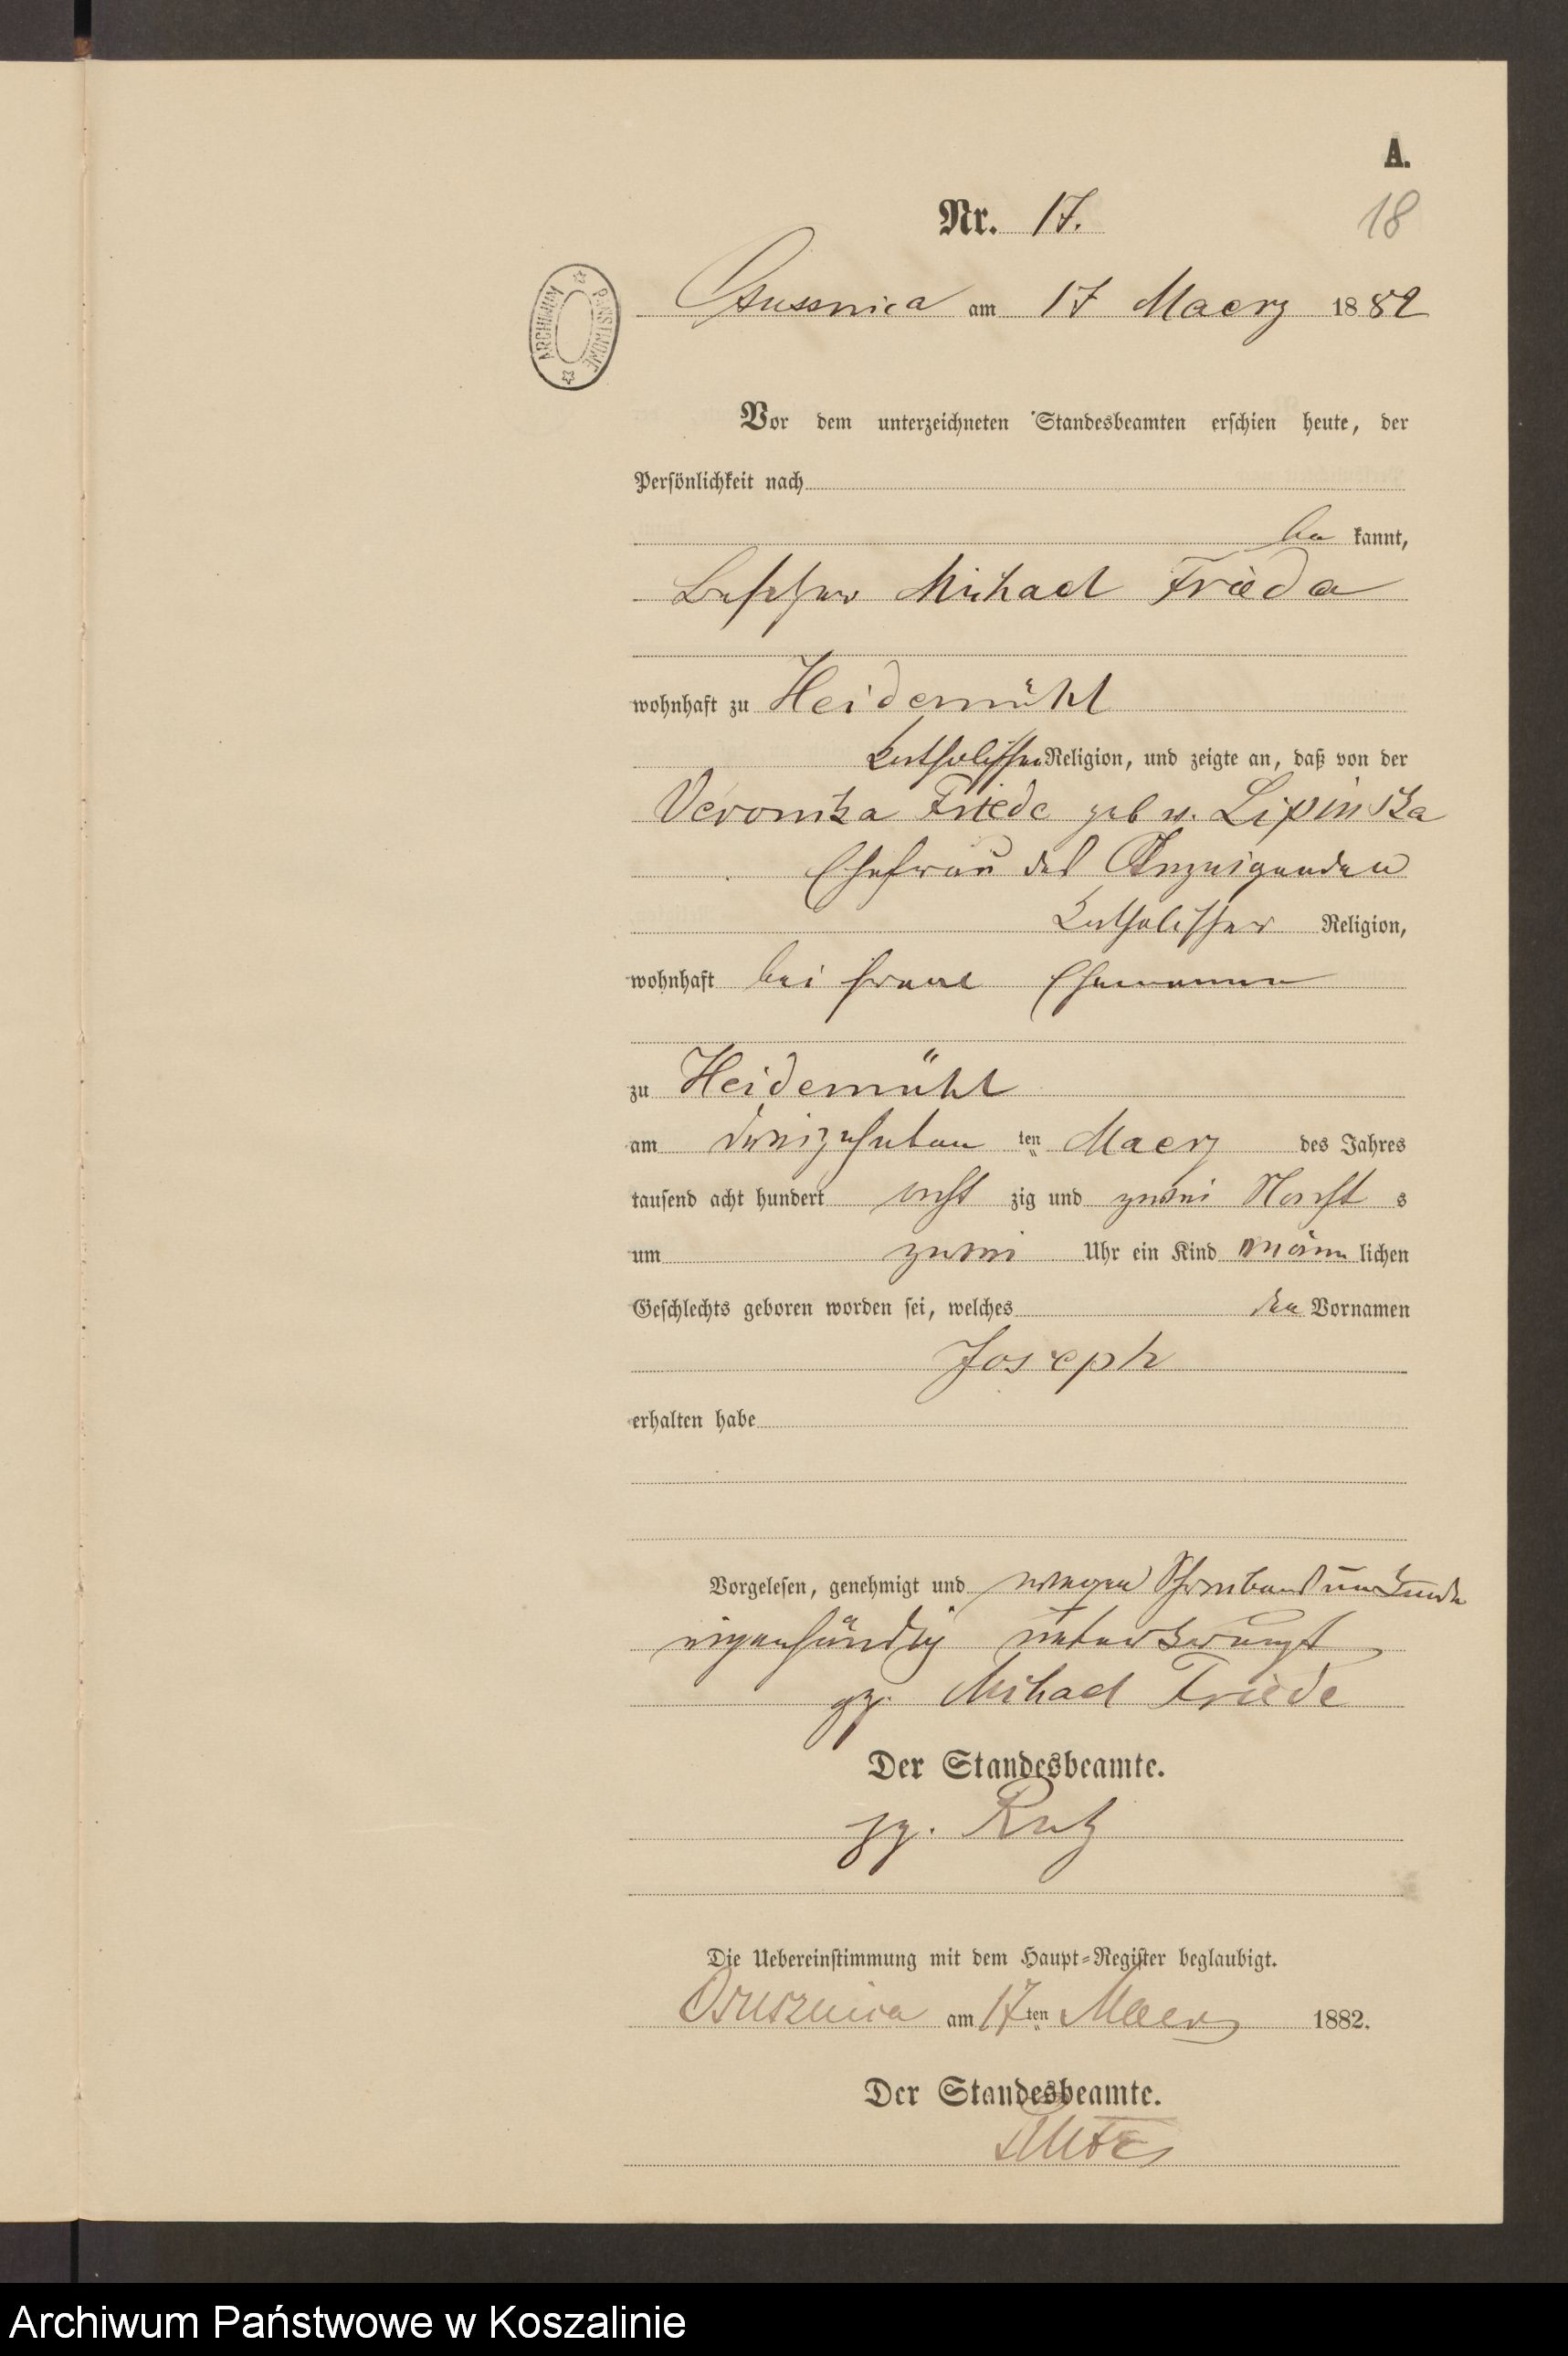 A.
Nr. 17.
18
ARCHIWUM PAŃSTWOWE
am 17 Maerz 1882
Vor dem unterzeichneten Standesbeamten erschien heute, der
Persönlichkeit nach
be kannt,
Besitzer Michael Frieda
wohnhaft zu Heidemühl
katholischen Religion, und zeigte an, daß von der
Veronika Friede geb v. Lipinska
Ehefrau des Anzeigenden
katholischer Religion,
wohnhaft bei ihrem Ehemanne
zu Heidemühl
am dreizehnten ten Maerz des Jahres
tausend acht hundert acht zig und zwei Nacht s
um zwei Uhr ein Kind männ lichen
Geschlechts geboren worden sei, welches den Vornamen
Joseph
erhalten habe
Vorgelesen, genehmigt und wegen Schreibensunkunde
eigenhändig unterkreuzt
gz. Michael Friede
Der Standesbeamte.
gz. Rutz
Die Uebereinstimmung mit dem Haupt-Register beglaubigt.
Osusznica am 17 ten Maerz 1882.
Der Standesbeamte.
Archiwum Państwowe w Koszalinie